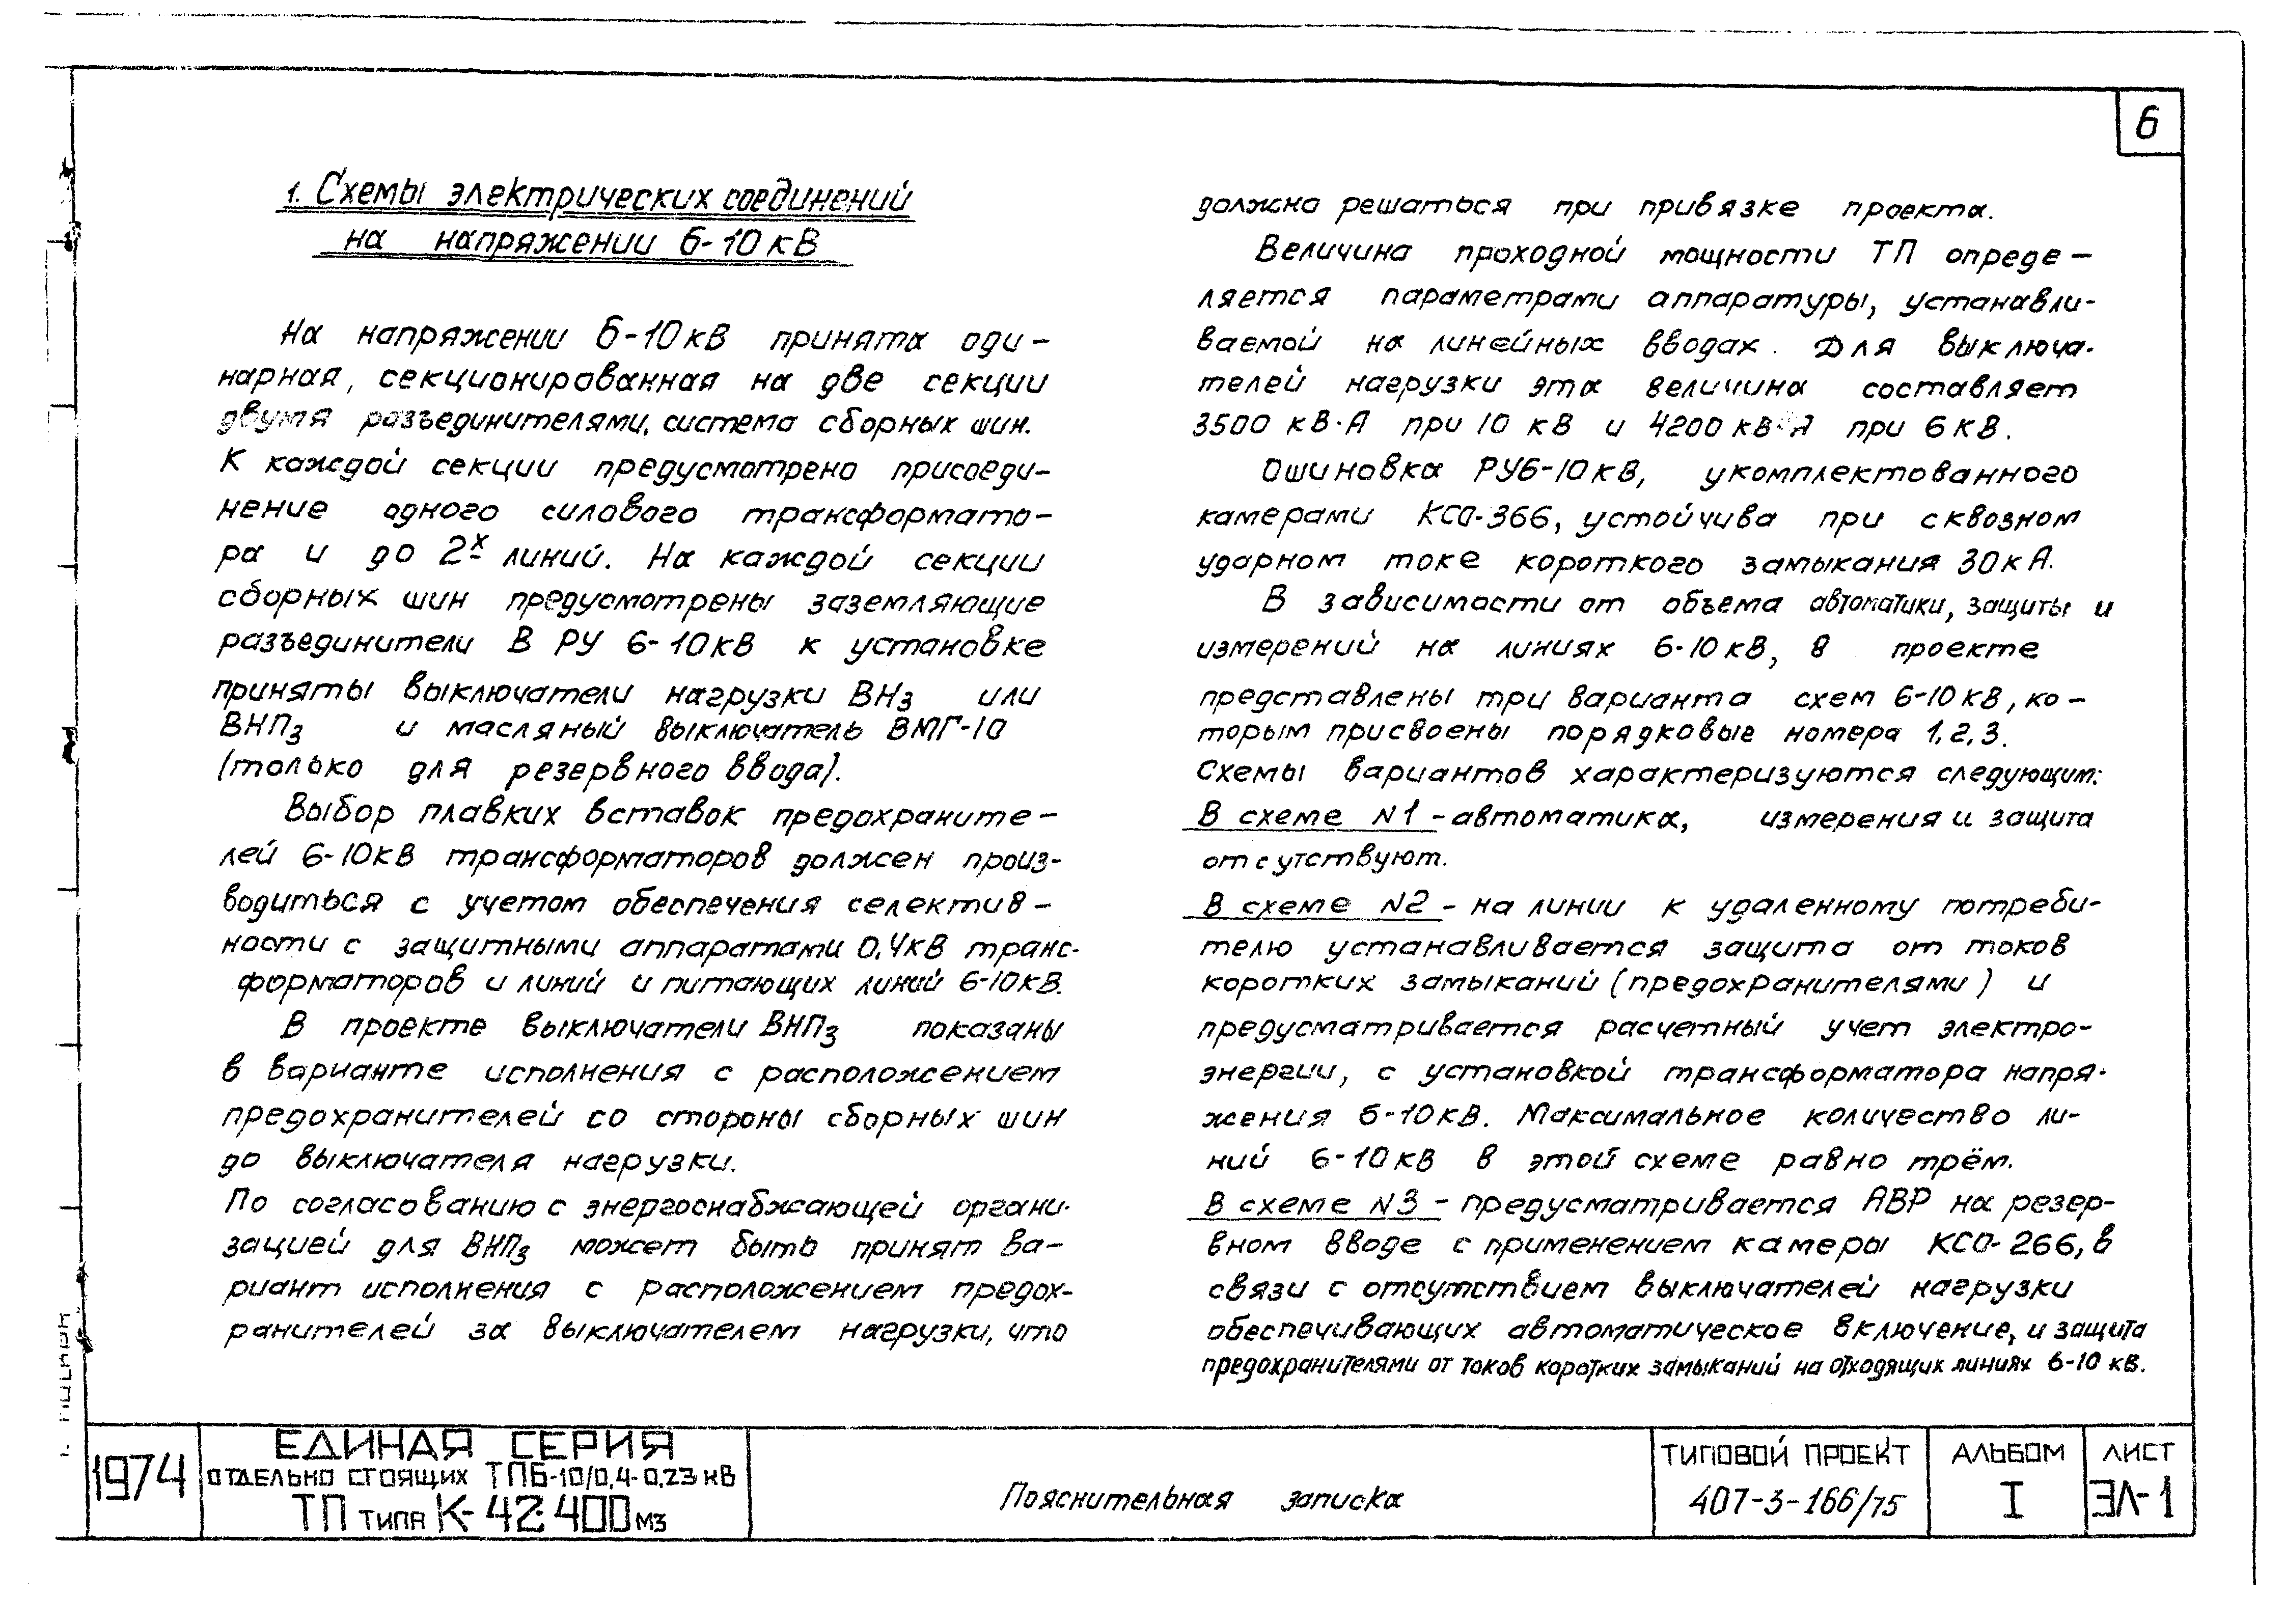 6
1. Схемы электрических соединений
на напряжении 6-10 кВ
На напряжении 6-10 кВ принята оди-
нарная, секционированная на две секции
двумя разъединителями, система сборных шин.
К каждой секции предусмотрено присоеди-
нение одного силового трансформато-
ра и до 2х линий. На каждой секции
сборных шин предусмотрены заземляющие
разъединители В РУ 6-10кВ к установке
приняты выключатели нагрузки ВНз или
ВНПз и масляный выключатель ВМГ-10
(только для резервного ввода).
Выбор плавких вставок предохраните-
лей 6-10кВ трансформаторов должен произ-
водиться с учетом обеспечения селектив-
ности с защитными аппаратами 0,4кВ транс-
форматоров и линий и питающих линий 6-10кВ.
В проекте выключатели ВНПз показаны
в варианте исполнения с расположением
предохранителей со стороны сборных шин
до выключателя нагрузки.
По согласованию с энергоснабжающей органи-
зацией для ВНПз может быть принят ва-
риант исполнения с расположением предох-
ранителей за выключателем нагрузки, что
должно решаться при привязке проекта.
Величина проходной мощности ТП опреде-
ляется параметрами аппаратуры, устанавли-
ваемой на линейных вводах. Для выключа-
телей нагрузки эта величина составляет
3500 кВ·А при 10 кВ и 4200 кВ·А при 6 кВ.
Ошиновка РУ6-10кВ, укомплектованного
камерами КСО-366, устойчива при сквозном
ударном токе короткого замыкания 30кА.
В зависимости от объема автоматики, защиты и
измерений на линиях 6-10кВ, в проекте
представлены три варианта схем 6-10кВ, ко-
торым присвоены порядковые номера 1,2,3.
Схемы вариантов характеризуются следующим:
В схеме N1 - автоматика, измерения и защита
отсутствуют.
В схеме N2 - на линии к удаленному потреби-
телю устанавливается защита от токов
коротких замыканий (предохранителями) и
предусматривается расчетный учет электро-
энергии, с установкой трансформатора напря-
жения 6-10кВ. Максимальное количество ли-
ний 6-10кВ в этой схеме равно трём.
В схеме N3 - предусматривается АВР на резер-
вном вводе с применением камеры КСО-266, в
связи с отсутствием выключателей нагрузки
обеспечивающих автоматическое включение, и защита
предохранителями от токов коротких замыканий на отходящих линиях 6-10 кВ.
1974
ЕДИНАЯ СЕРИЯ
ОТДЕЛЬНО СТОЯЩИХ ТПБ-10/0,4-0,23 кВ
ТП ТИПА К-42-400 М3
Пояснительная записка
ТИПОВОЙ ПРОЕКТ
407-3-166/75
АЛЬБОМ
I
ЛИСТ
ЭЛ-1